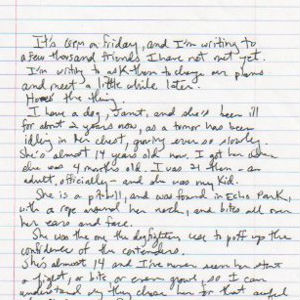 It's 6pm on Friday, and I'm writing to
a few thousand friends I have not met yet.
I'm writing to ask them to change our plans
and meet a little while later.
Here's the thing.
I have a dog, Janet, and she's been ill
for about 2 years now, as a tumor has been
idling in her chest, growing ever so slowly.
She's almost 14 years old now. I got her when
she was 4 months old. I was 21 then - an
adult, officially - and she was my kid.
She is a pitbull, and was found in Echo Park,
with a rope around her neck, and bites all over
her ears and face.
She was the one the dogfighters use to puff up the
confidence of the contenders.
She's almost 14 and I've never seen her start
a fight, or bite, or even growl, so I can
understand why they chose her for that awful